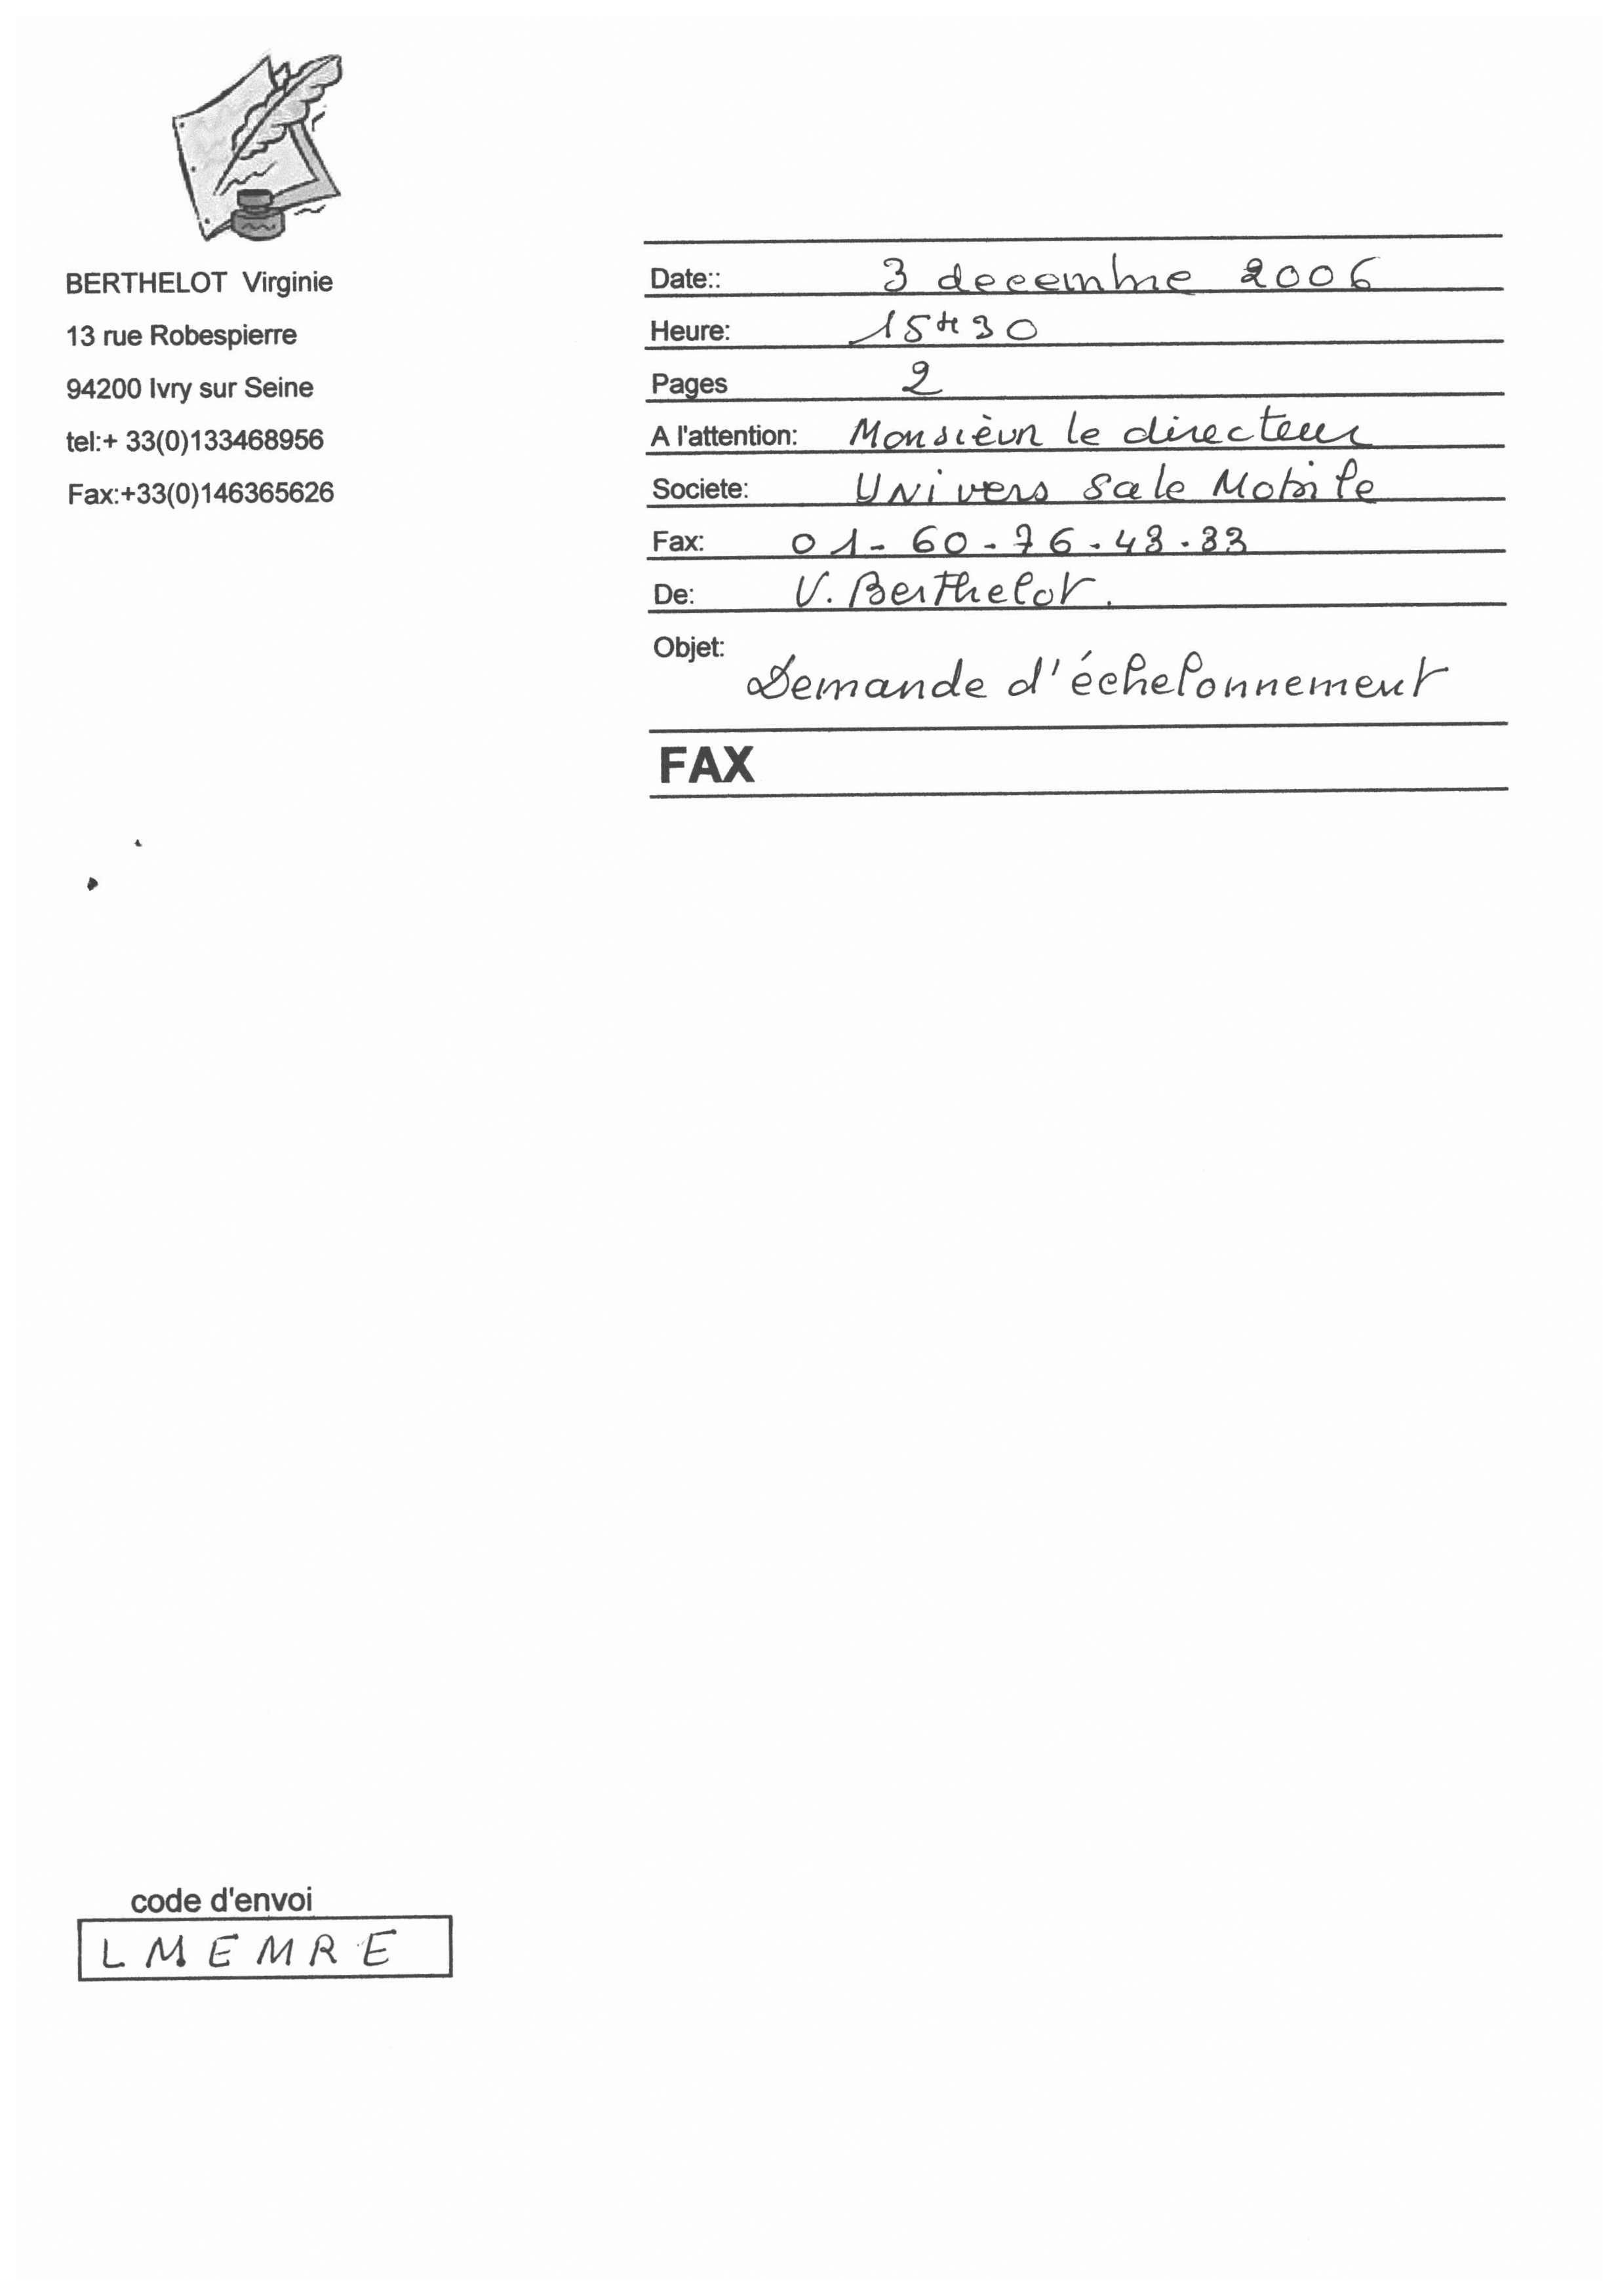 BERTHELOT Virginie
13 rue Robespierre
94200 Ivry sur Seine
tel:+ 33(0)133468956
Fax:+33(0)146365626
Date:: 3 decembre 2006
Heure: 15H30
Pages 2
A l'attention: Monsièur le directeur
Societe: UNivers sale Mobile
Fax: 01-60-76-43-33
De: V. Berthelot.
Objet: Demande d'échelonnement
FAX
code d'envoi
LMEMRE